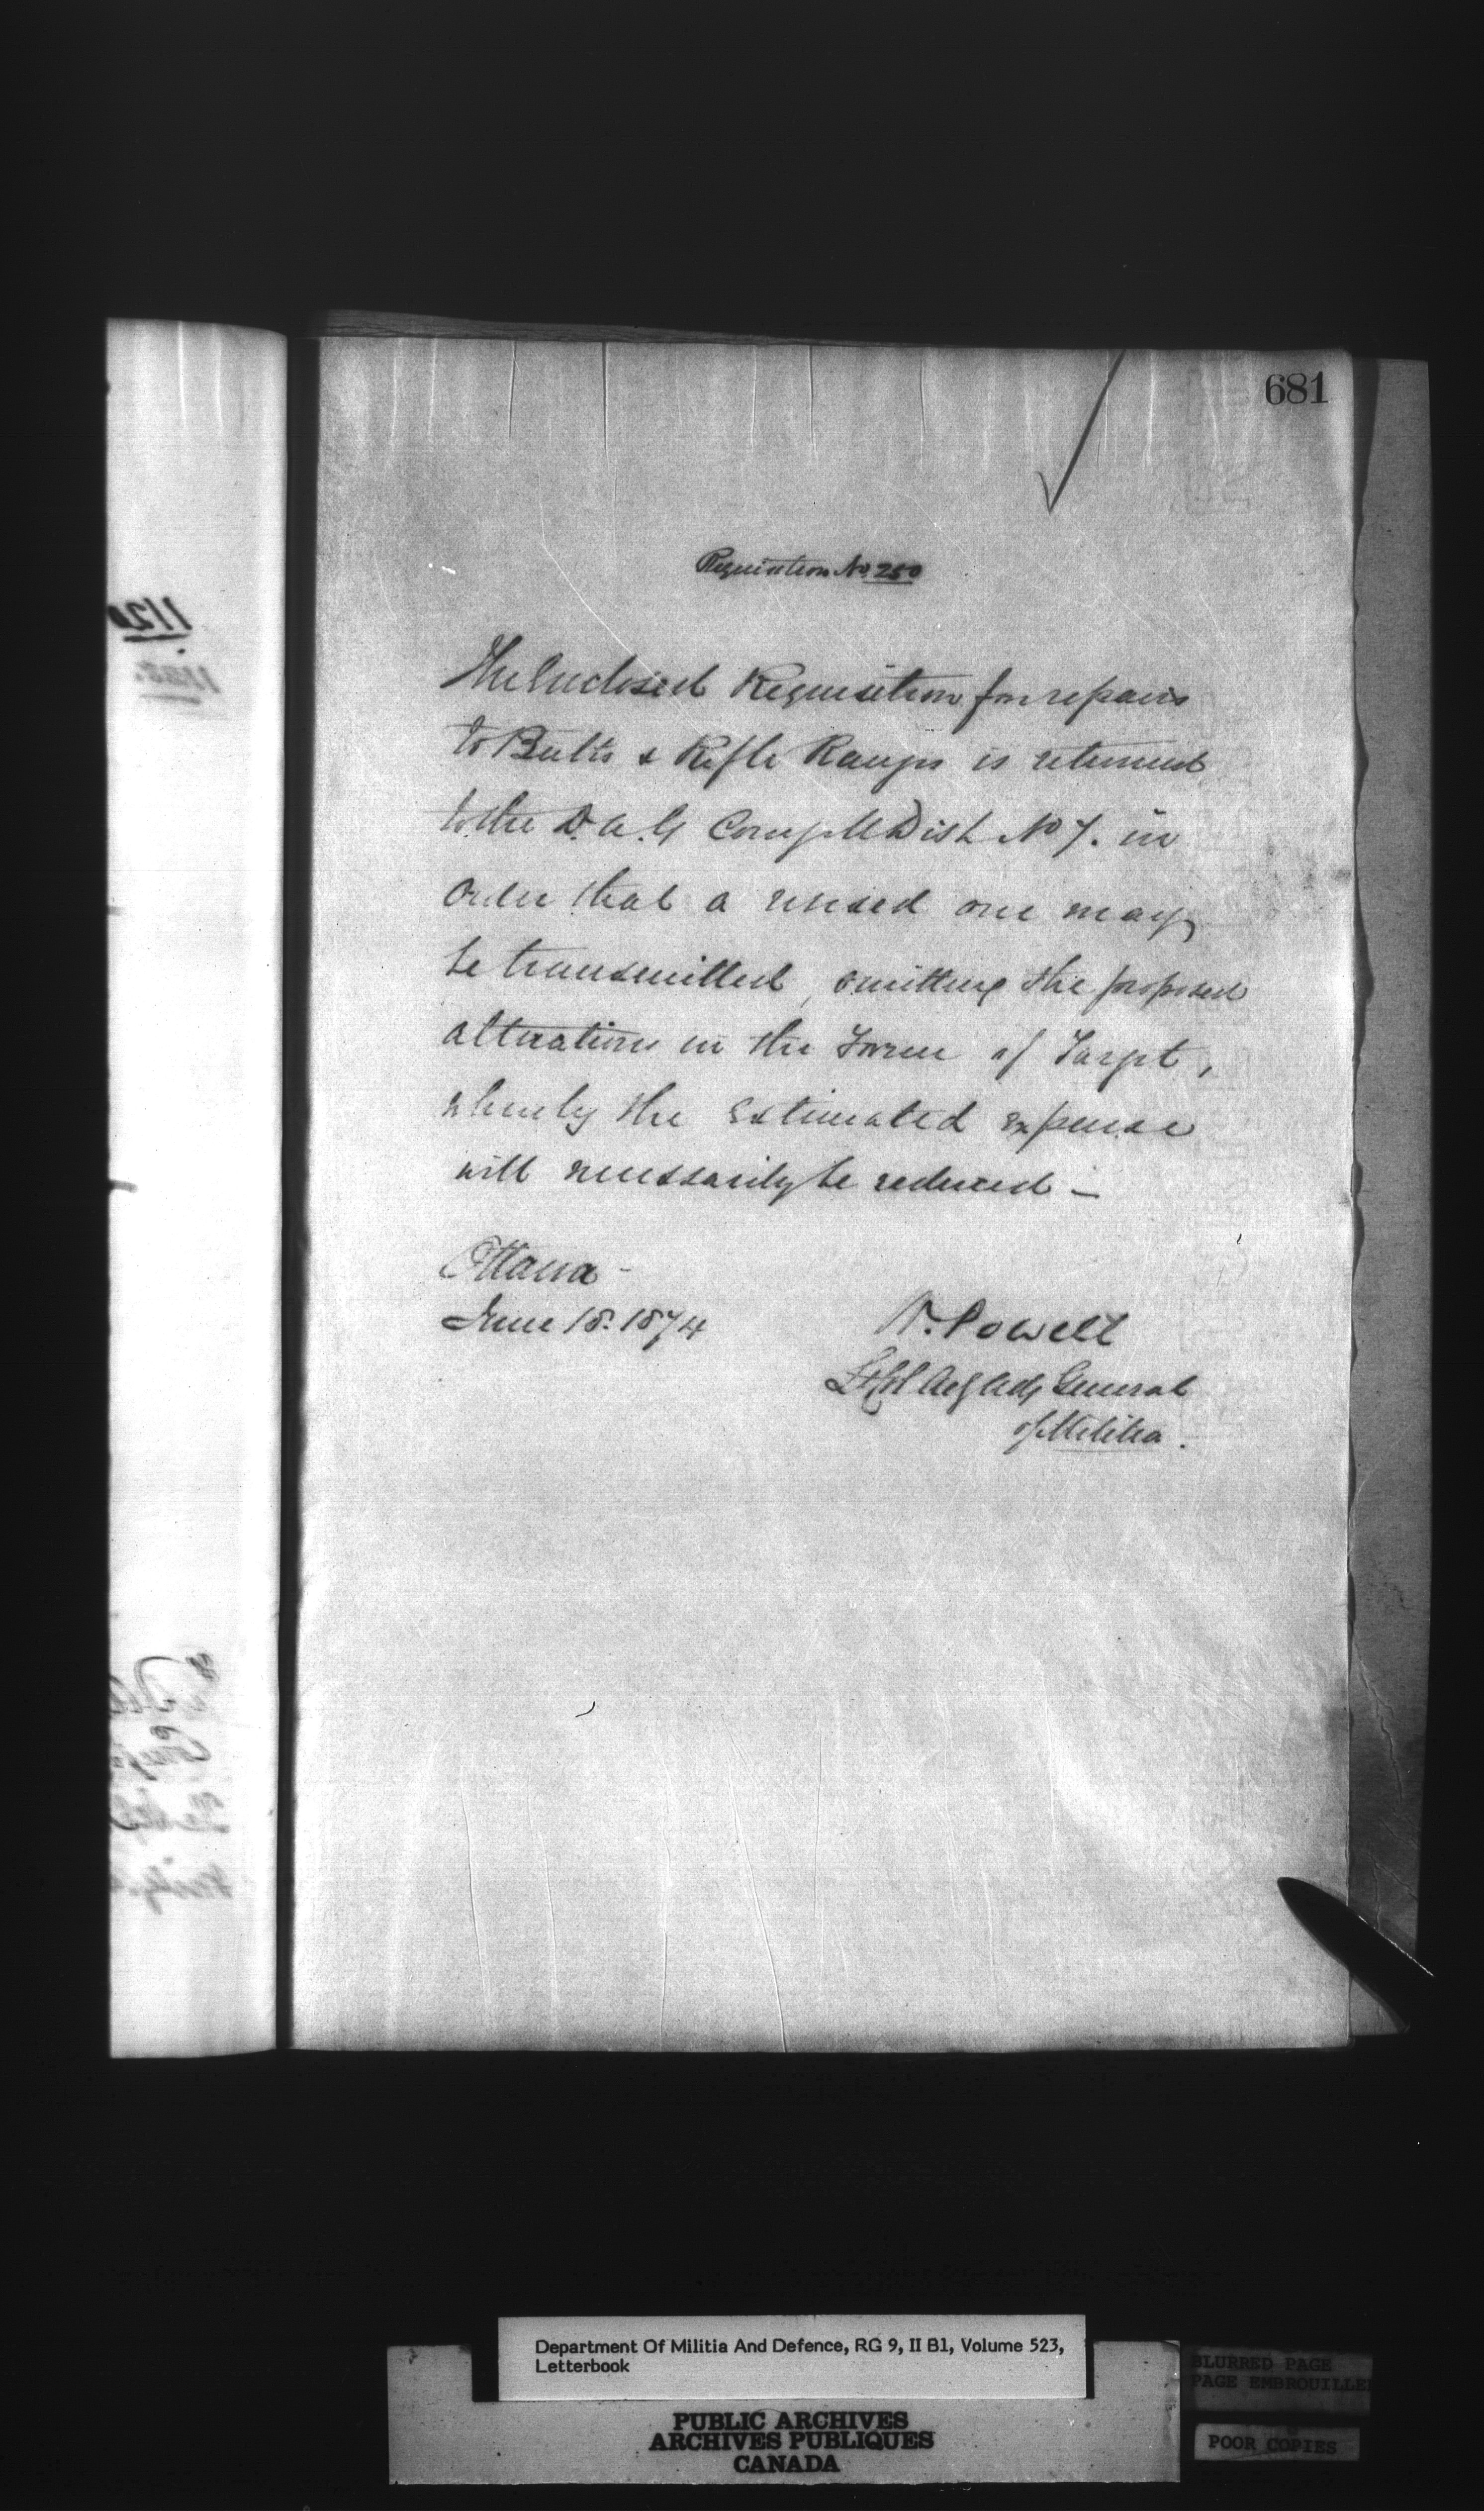 681
Requisition No. 250
The Enclosed Requisition for repairs
to Butts & Rifle Ranges is returned
to the D. A. G Comg M Dist No 7. in
order that a revised one may
be transmitted, omitting the proposed
alterations in the Form of Target,
whereby the estimated expense
will necessarily be reduced —
Ottawa -
June 18. 1874
W. Powell
Lt Col Actg Adj General
of Militia.
Department Of Militia And Defence, RG 9, II B1, Volume 523,
Letterbook
PUBLIC ARCHIVES
ARCHIVES PUBLIQUES
CANADA
BLURRED PAGE
PAGE EMBROUILLE
POOR COPIES